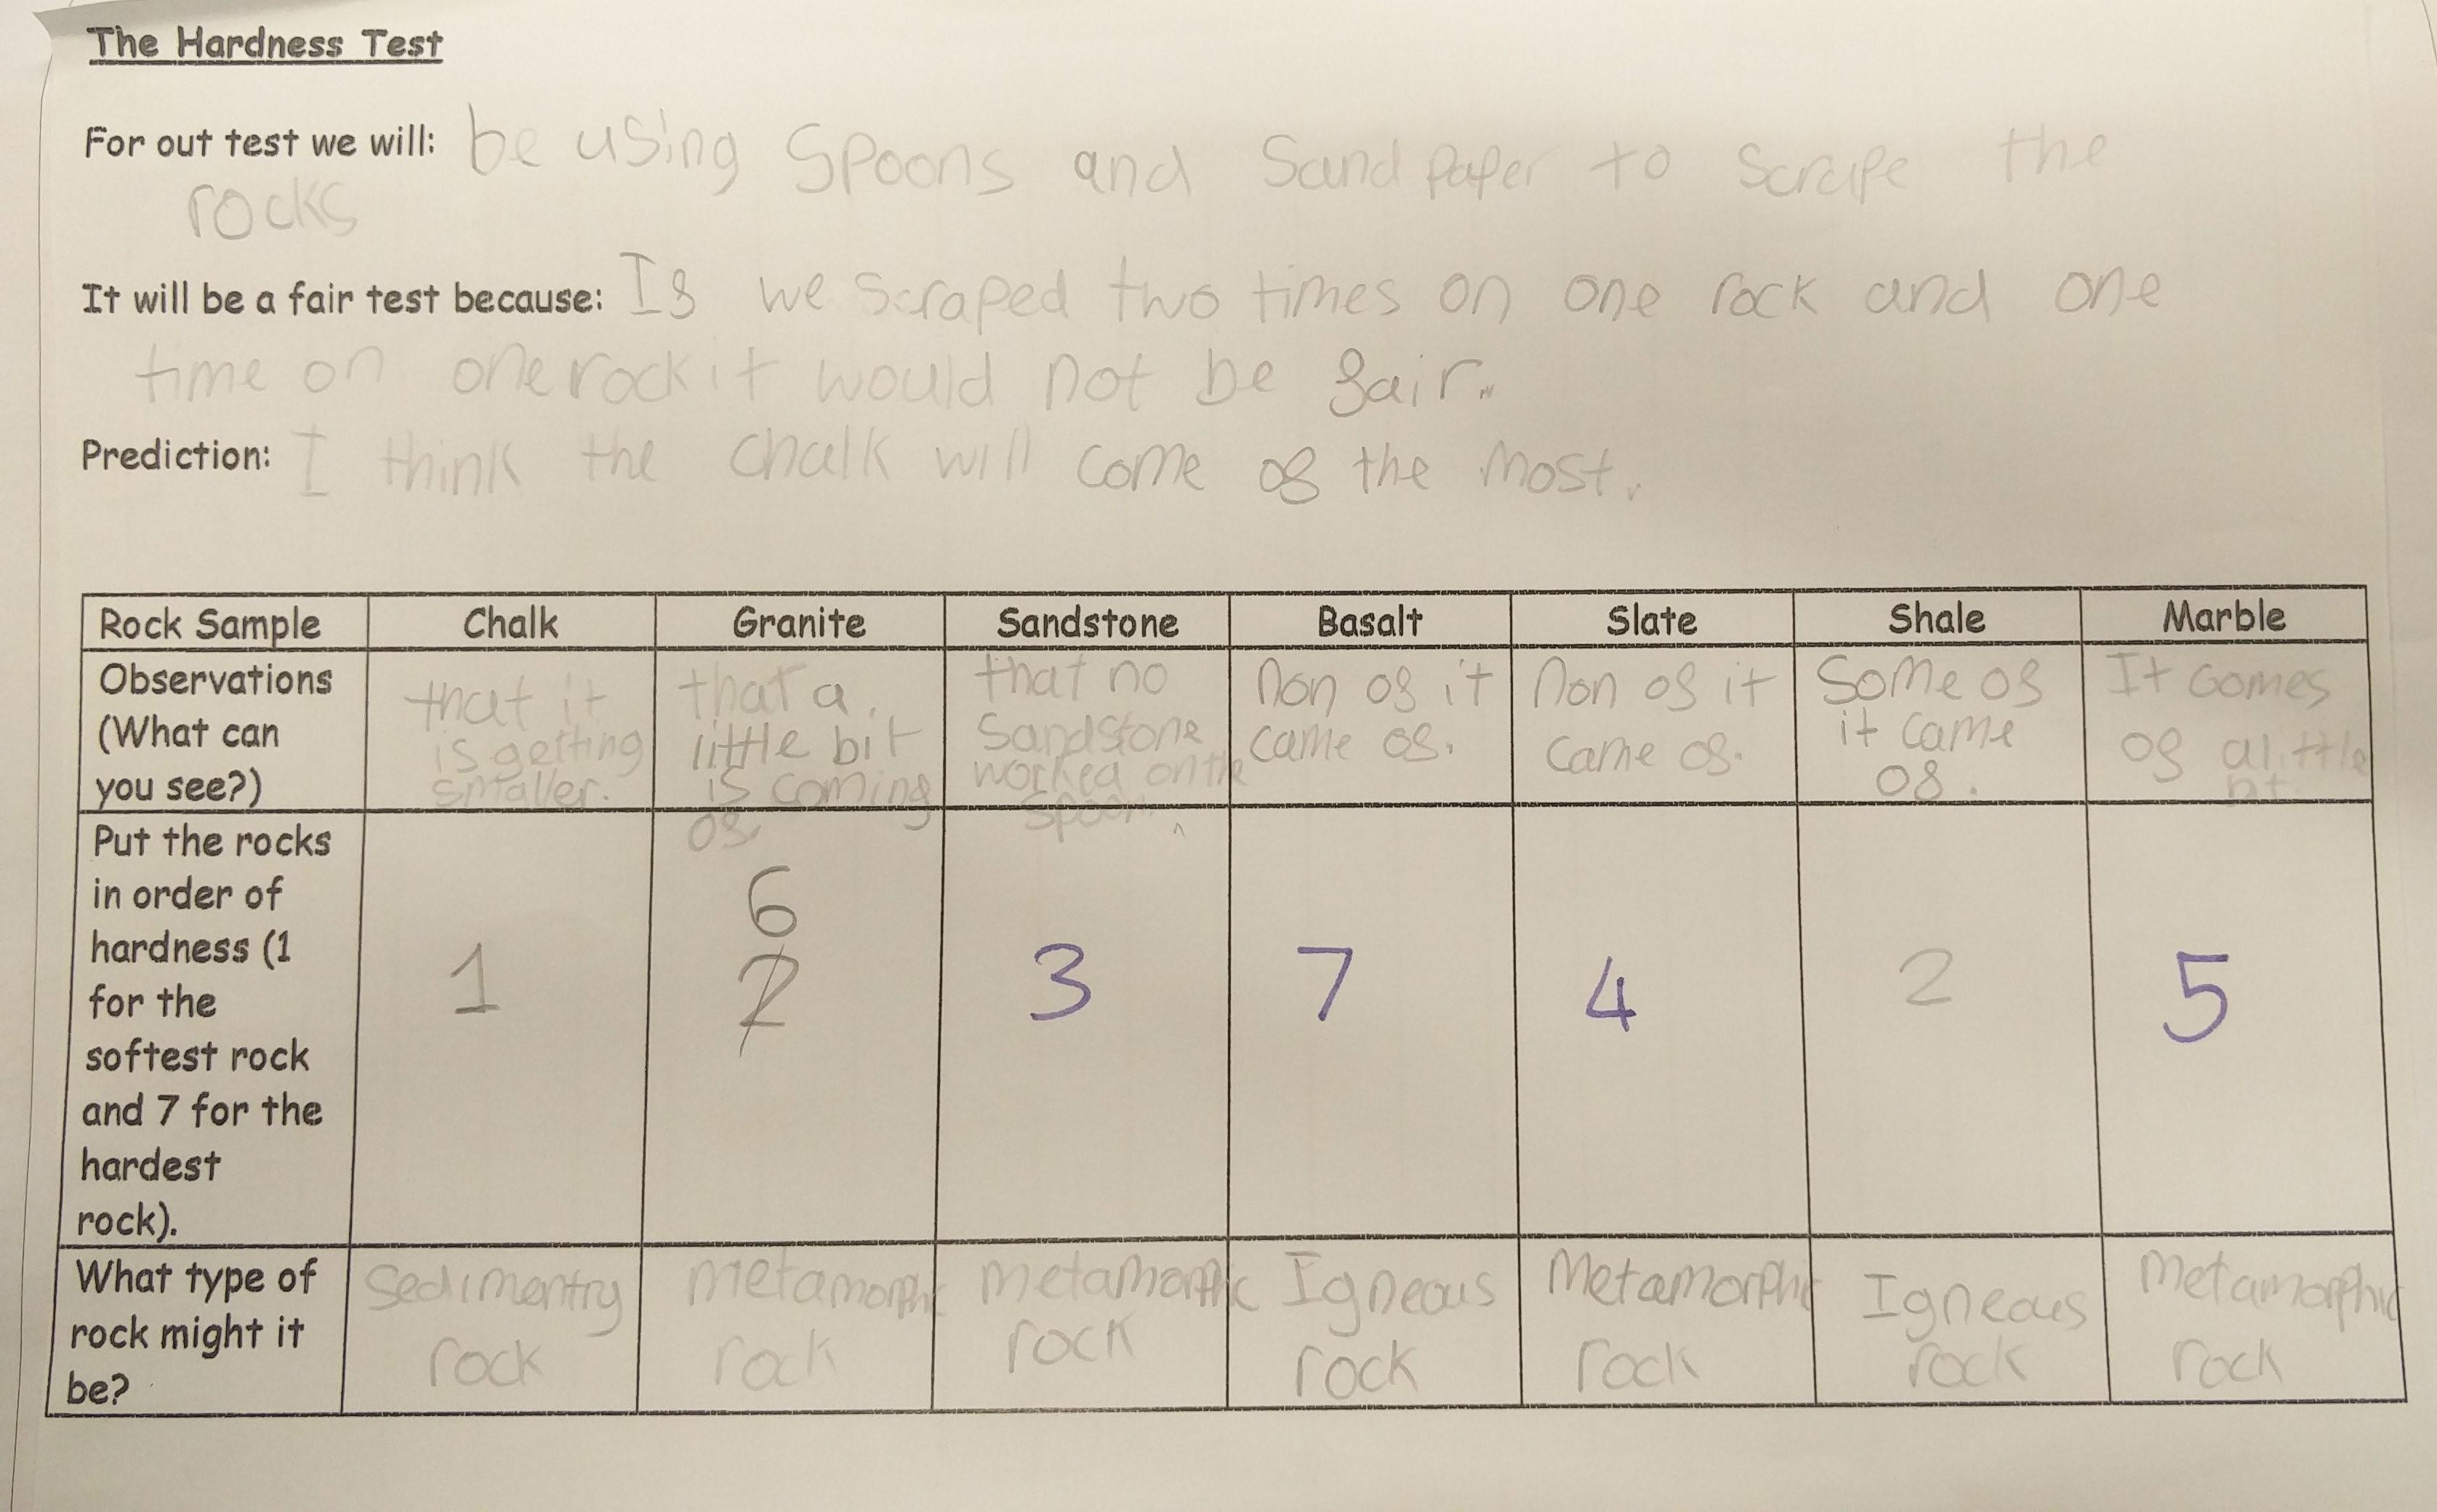 The Hardness Test
For out test we will: be using Spoons and Sand paper to scrape the
rocks
It will be a fair test because: If we scraped two times on one rock and one
time on one rock it would not be fair.
Prediction: I think the chalk will come of the most.
Rock Sample Chalk Granite Sandstone Basalt Slate Shale Marble
Observations
(What can
you see?)
that it
is getting
smaller.
that a
little bit
is coming
of.
that no
Sandstone
worked on the
spoon.
non of it
came of.
non of it
came of.
Some of
it came
of.
It comes
of a little
bit.
Put the rocks
in order of
hardness (1
for the
softest rock
and 7 for the
hardest
rock).
1
6
2
3
7
4
2
5
What type of
rock might it
be?
Sedimentry
rock
metamorphic
rock
metamorphic
rock
Igneous
rock
Metamorphic
rock
Igneous
rock
metamorphic
rock